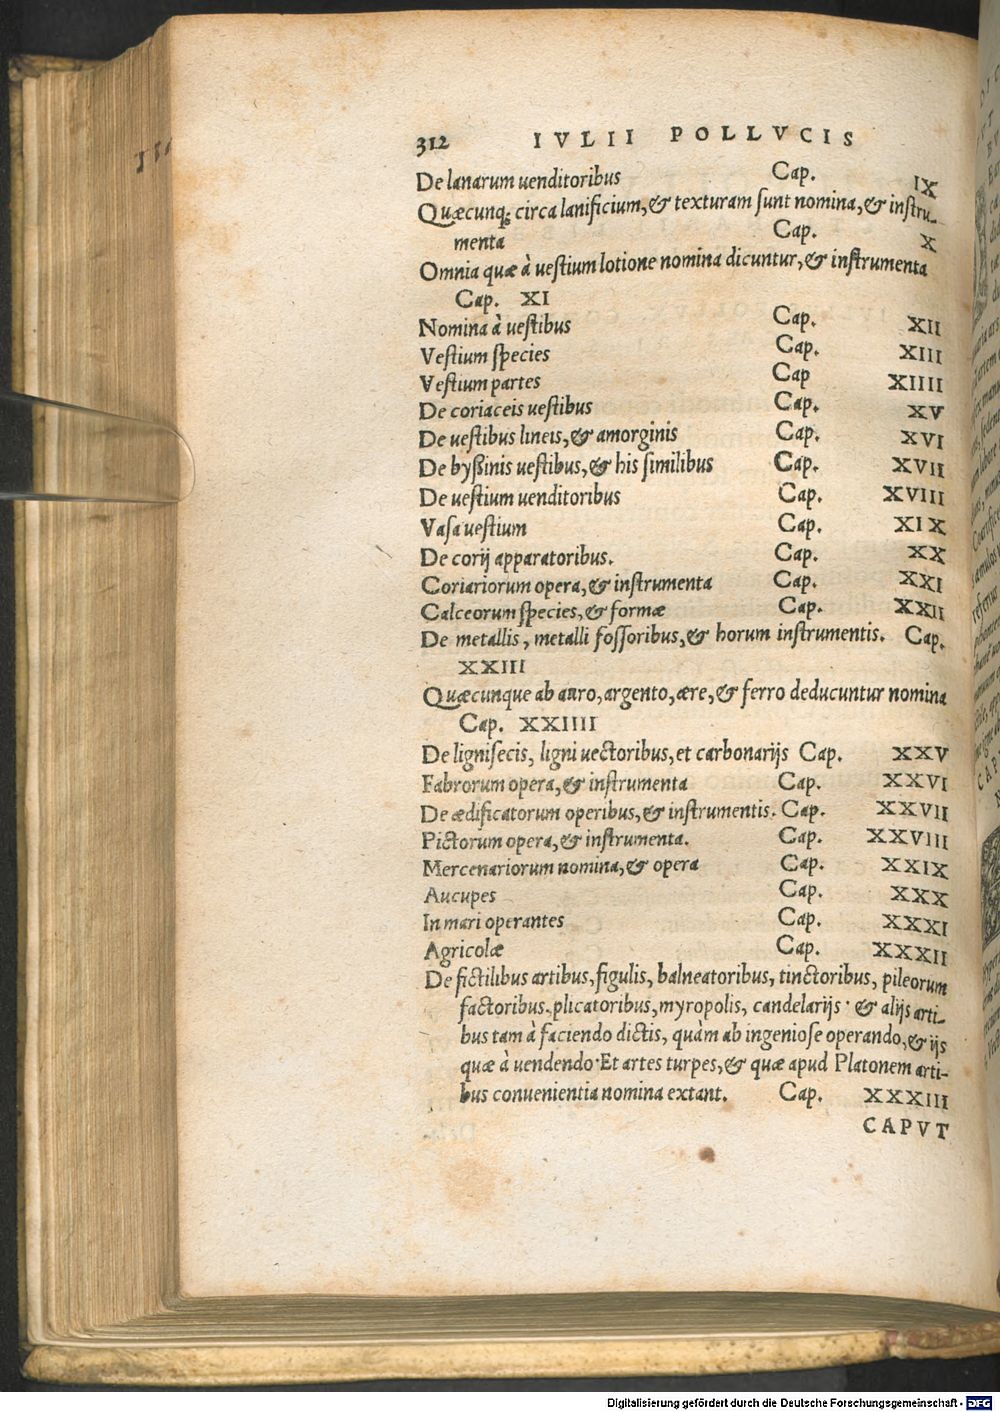 312 IVLII POLLVCIS
De lanarum uenditoribus Cap. IX
Quæcunq; circa lanificium, & texturam ſunt nomina, & inſtru-
menta Cap. X
Omnia quæ à ueſtium lotione nomina dicuntur, & inſtrumenta
Cap. XI
Nomina à ueſtibus Cap. XII
Veſtium ſpecies Cap. XIII
Veſtium partes Cap XIIII
De coriaceis ueſtibus Cap. XV
De ueſtibus lineis, & amorginis Cap. XVI
De byßinis ueſtibus, & his ſimilibus Cap. XVII
De ueſtium uenditoribus Cap. XVIII
Vaſa ueſtium Cap. XIX
De corij apparatoribus. Cap. XX
Coriariorum opera, & inſtrumenta Cap. XXI
Calceorum ſpecies, & formæ Cap. XXII
De metallis, metalli foſſoribus, & horum inſtrumentis. Cap.
XXIII
Quæcunque ab auro, argento, ære, & ferro deducuntur nomina
Cap. XXIIII
De ligniſecis, ligni uectoribus, et carbonarijs Cap. XXV
Fabrorum opera, & inſtrumenta Cap. XXVI
De ædificatorum operibus, & inſtrumentis. Cap. XXVII
Pictorum opera, & inſtrumenta. Cap. XXVIII
Mercenariorum nomina, & opera Cap. XXIX
Aucupes Cap. XXX
In mari operantes Cap. XXXI
Agricolæ Cap. XXXII
De fictilibus artibus, figulis, balneatoribus, tinctoribus, pileorum
factoribus, plicatoribus, myropolis, candelarijs · & alijs arti-
bus tam à faciendo dictis, quàm ab ingenioſe operando, & ijs
quæ à uendendo · Et artes turpes, & quæ apud Platonem arti-
bus conuenientia nomina extant. Cap. XXXIII
CAPVT
Digitalisierung gefördert durch die Deutsche Forschungsgemeinschaft - DFG